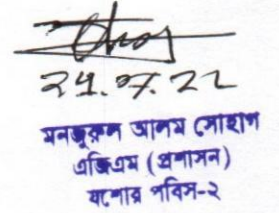 মনজুরুল আলম সোহাগ
এজিএম (প্রশাসন)
যশোর পবিস-২